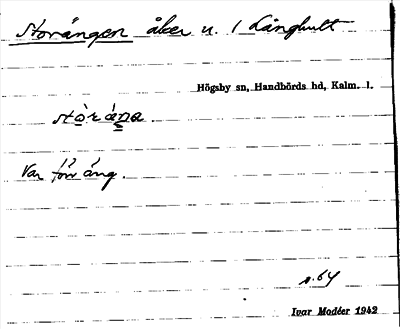 Storängen åker u. 1 Långhult
Högsby sn, Handbörds hd, Kalm. l.
stòräŋa
Var förr äng.
s. 64
Ivar Modéer 1942